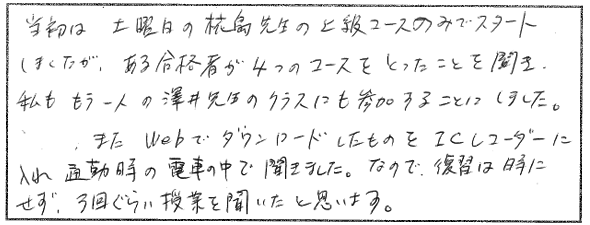 当初は 土曜日の 柾島先生の上級コースのみでスタート
しましたが、ある合格者が4つのコースをとったことを聞き、
私ももう一人の澤井先生のクラスにも参加することにしました。
、また Webでダウンロードしたものを ICレコーダーに
入れ 通勤時の電車の中で聞きました。なので、復習は特に
せず、3回ぐらい授業を聞いたと思います。